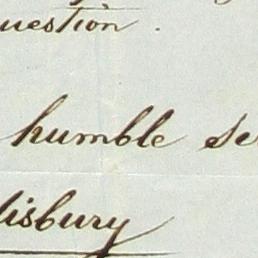 uestion .
humble se
lisbury